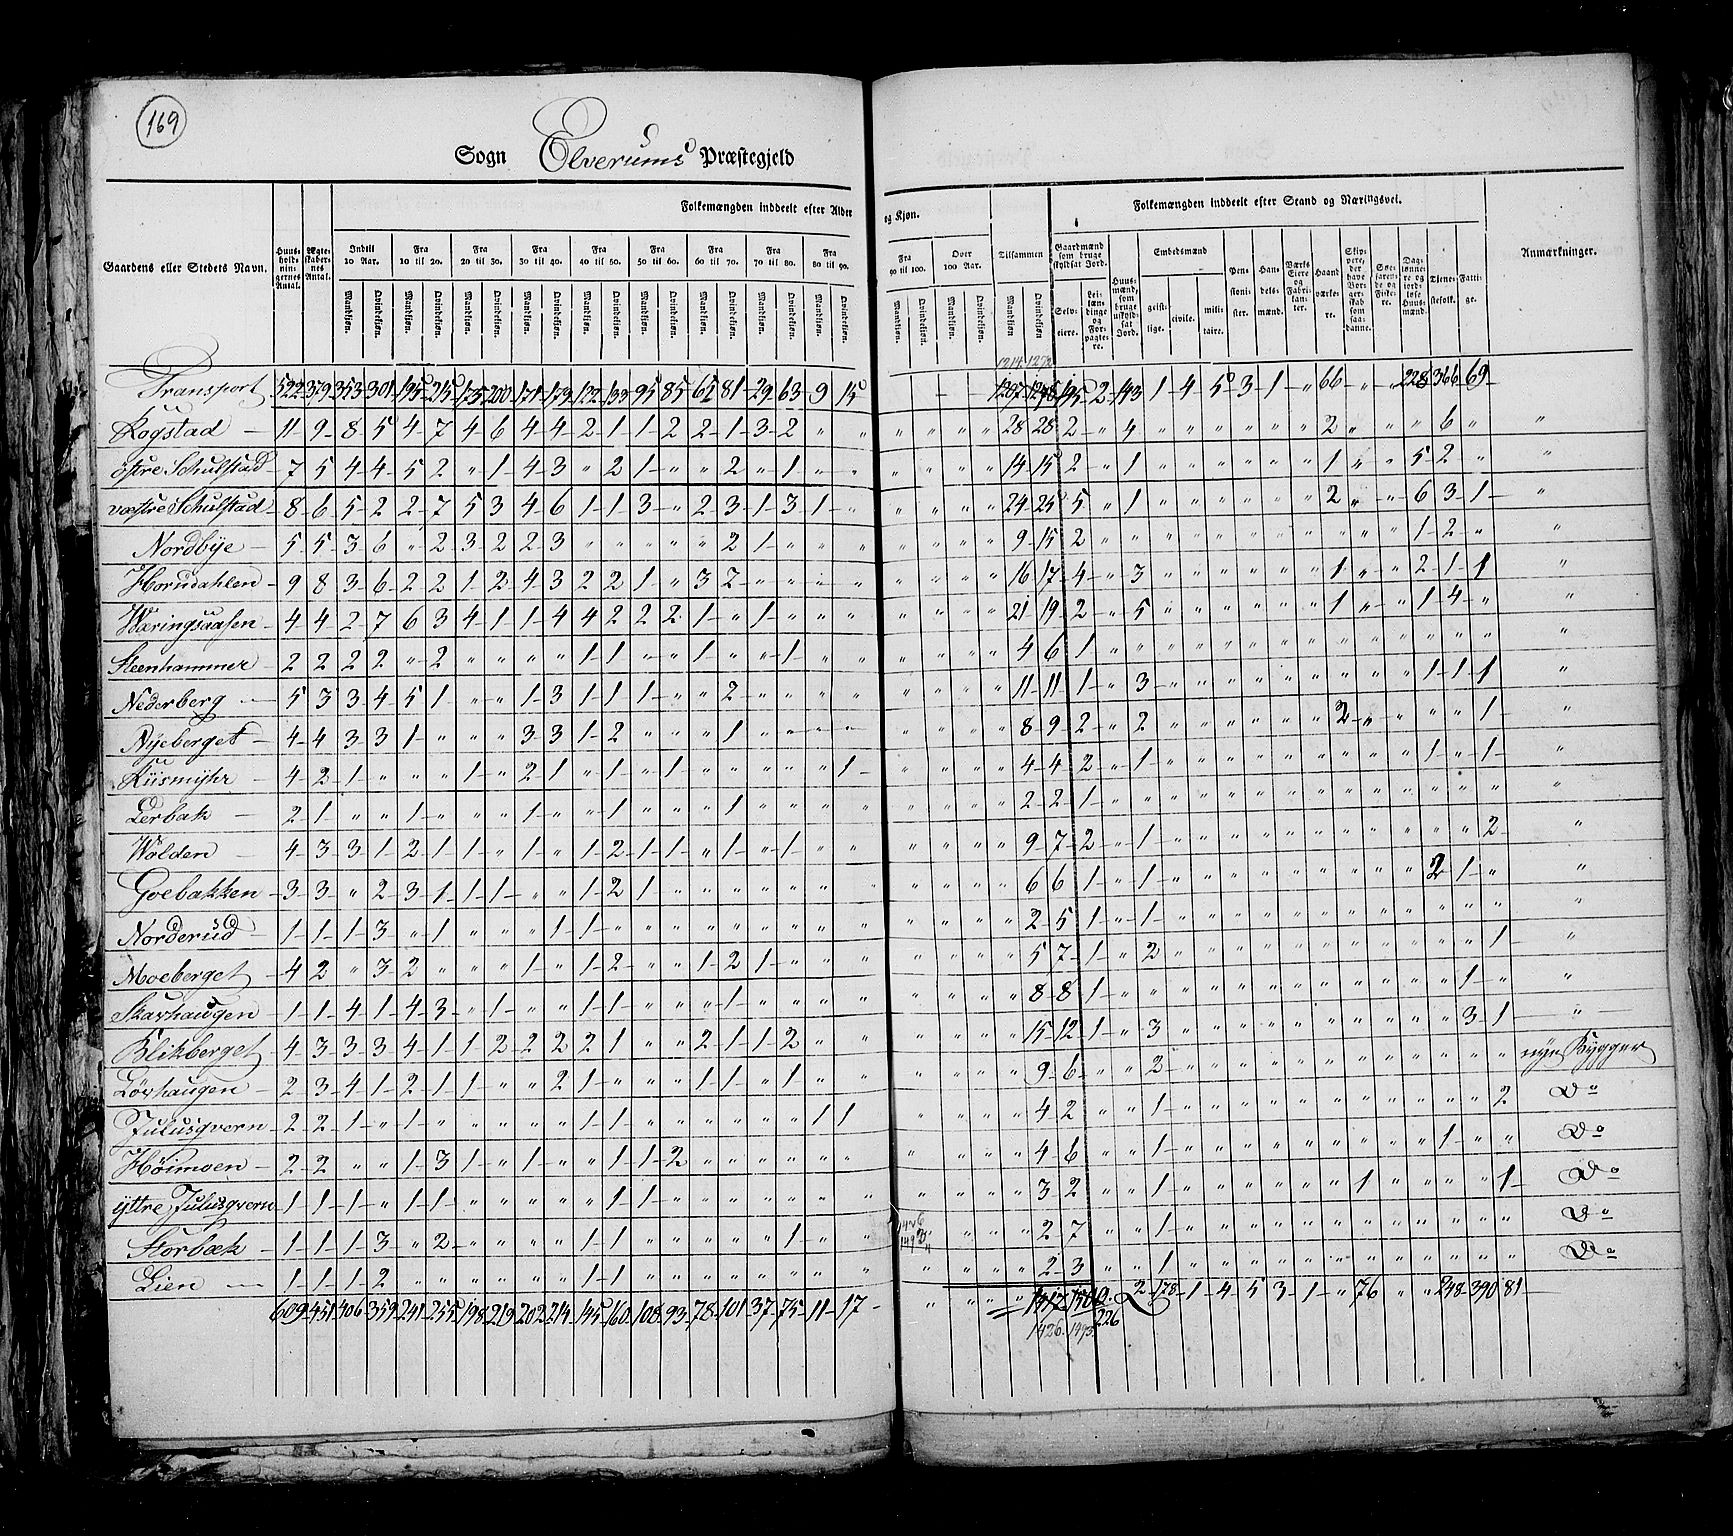 169
Sogn Elverums Præstegjeld
Folkemængden inddeelt efter Alder og Kjøn. Folkemængden inddeelt efter Stand og Næringsvei.
Gaardens eller Stedets Navn. Huusholdningernes Antal. Ægteskabernes Antal. Indtil 10 Aar. Fra 10 til 20. Fra 20 til 30. Fra 30 til 40. Fra 40 til 50. Fra 50 til 60. Fra 60 til 70. Fra 70 til 80. Fra 80 til 90. Fra 90 til 100. Over 100 Aar. Tilsammen Gaardmænd som bruge skyldsat Jord. Huusmænd som bruge uskyldsat Jord. Embedsmænd Pensionister. Handelsmænd. Værks Eiere og Fabrikanter. Haandværkere. Skippere, der have Borgerskab som saadanne. Søefarende og Fiskere. Daglønnere og jordløse Huusmænd. Tjenestefolk. Fattige. Anmærkninger.
Mandkjøn. Qvindekjøn. Selveiere. Leilændinge og Forpagtere. geistlige. civile. militaire.
1214 1272
Transport 522 379 353 301 195 215 173 200 171 173 122 133 95 85 62 81 29 63 9 15 - - 195 2 143 1 4 5 3 1 " 66 " " 228 366 69
Rogstad 11 9 8 5 4 7 4 6 4 4 2 1 1 2 2 1 3 2 " " " " " " 28 28 2 " 4 " " " " " " 2 " " " 6 " "
østre Schulstad 7 5 4 4 5 2 " 1 4 3 " 2 1 " " 2 " 1 " " " " " " 14 15 2 " 1 " " " " " " 1 " " 5 2 " "
væstre Schulstad 8 6 5 2 2 7 5 3 4 6 1 1 3 " 2 3 1 3 1 " " " " " 24 25 5 " 1 " " " " " " 2 " " 6 3 1 "
Nordbye 5 5 3 6 " 2 3 2 2 3 " " " " " 2 1 " " " " " " " 9 15 2 " " " " " " " " " " " 1 2 " "
Horndahlen 9 8 3 6 2 2 1 2 4 3 2 2 1 " 3 2 " " " " " " " " 16 17 4 " 3 " " " " " " 1 " " 2 1 1 "
Wæringsaasen 4 4 2 7 6 3 4 1 1 4 4 2 2 2 1 " 1 " " " " " " " 21 19 2 " 5 " " " " " " 1 " " 1 4 " "
Steenhammer 2 2 2 2 " 2 " " " " 1 1 " " 1 " " 1 " " " " " " 4 6 1 " " " " " " " " " " " " " " "
Nederberg 5 3 3 4 5 1 " " 1 3 1 1 1 " " 2 " " " " " " " " 11 11 1 " 3 " " " " " " " " " 1 1 1 "
Nyeberget 4 4 3 3 1 " " " 3 3 1 2 " " " 1 " " " " " " " " 8 9 2 " 2 " " " " " " 2 " " " " 1 "
Kiismyhr 4 2 1 " " " 1 " 2 1 " 1 " 1 " " " " " 1 " " " " 4 4 2 " 1 " " " " " " " " " 1 " 1 "
Lerbak 2 1 " " 1 " " " 1 " " 1 " " " 1 " " " " " " " " 2 2 1 " " " " " " " " " " " " " " "
Wolden 4 3 3 1 2 1 1 " 1 " 1 2 1 1 " 1 " 1 " " " " " " 9 7 2 " 1 " " " " " " " " " " " 2 "
Goebakken 3 3 " 2 3 1 1 1 " " 1 2 1 " " " " " " " " " " " 6 6 1 " 1 " " " " " " " " " 2 1 " "
Norderud 1 1 1 3 " 1 " " " 1 1 " " " " " " " " " " " " " 2 5 1 " 1 " " " " " " " " " " " " "
Moeberget 4 2 " 3 2 " " " 1 " 1 2 " " 1 2 1 " " " " " " " 5 7 1 " 2 " " " " " " " " " " " 1 "
Skarhaugen 1 1 4 1 4 3 " 1 " " 1 1 " " " 1 " " " " " " " " 8 8 1 " " " " " " " " " " " " 1 " "
Blikberget 4 3 3 3 4 1 1 2 2 2 2 1 " " 2 1 1 2 " " " " " " 15 12 1 " 3 " " " " " " " " " " 3 1 "
Lövhaugen 2 3 4 1 2 1 1 " " 2 1 " " " 1 1 " 1 " " " " " " 9 6 " " 2 " " " " " " " " " " " " nye Bygger
Julusqvern 2 2 1 " 1 " " " " " 1 1 " " " " " " 1 1 " " " " 4 2 " " 1 " " " " " " " " " " " 2 Do
Höimoen 2 2 " " 1 3 1 " 1 " " 1 1 2 " " " " " " " " " " 4 6 " " 1 " " " " " " " " " 1 " " Do
yttre Julusqvern 1 1 1 " 1 1 " " " " " 1 1 " " " " " " " " " " " 3 2 " " 1 " " " " " " 1 " " " " 1 Do
Storbæk 1 1 1 3 " 2 " " " " 1 1 " " " " " 1 " " " " " " 2 7 " " 1 " " " " " " " " " " " " Do
Lien 1 1 1 2 " " " " " " 1 1 " " " " " " " " " " " " 2 3 " " 1 " " " " " " " " " " " " Do
609 451 406 359 241 255 198 219 202 214 145 160 108 93 78 101 37 75 11 17 " " " " 2 178 1 4 5 3 1 " 76 " " 248 390 81
1426 1493 226